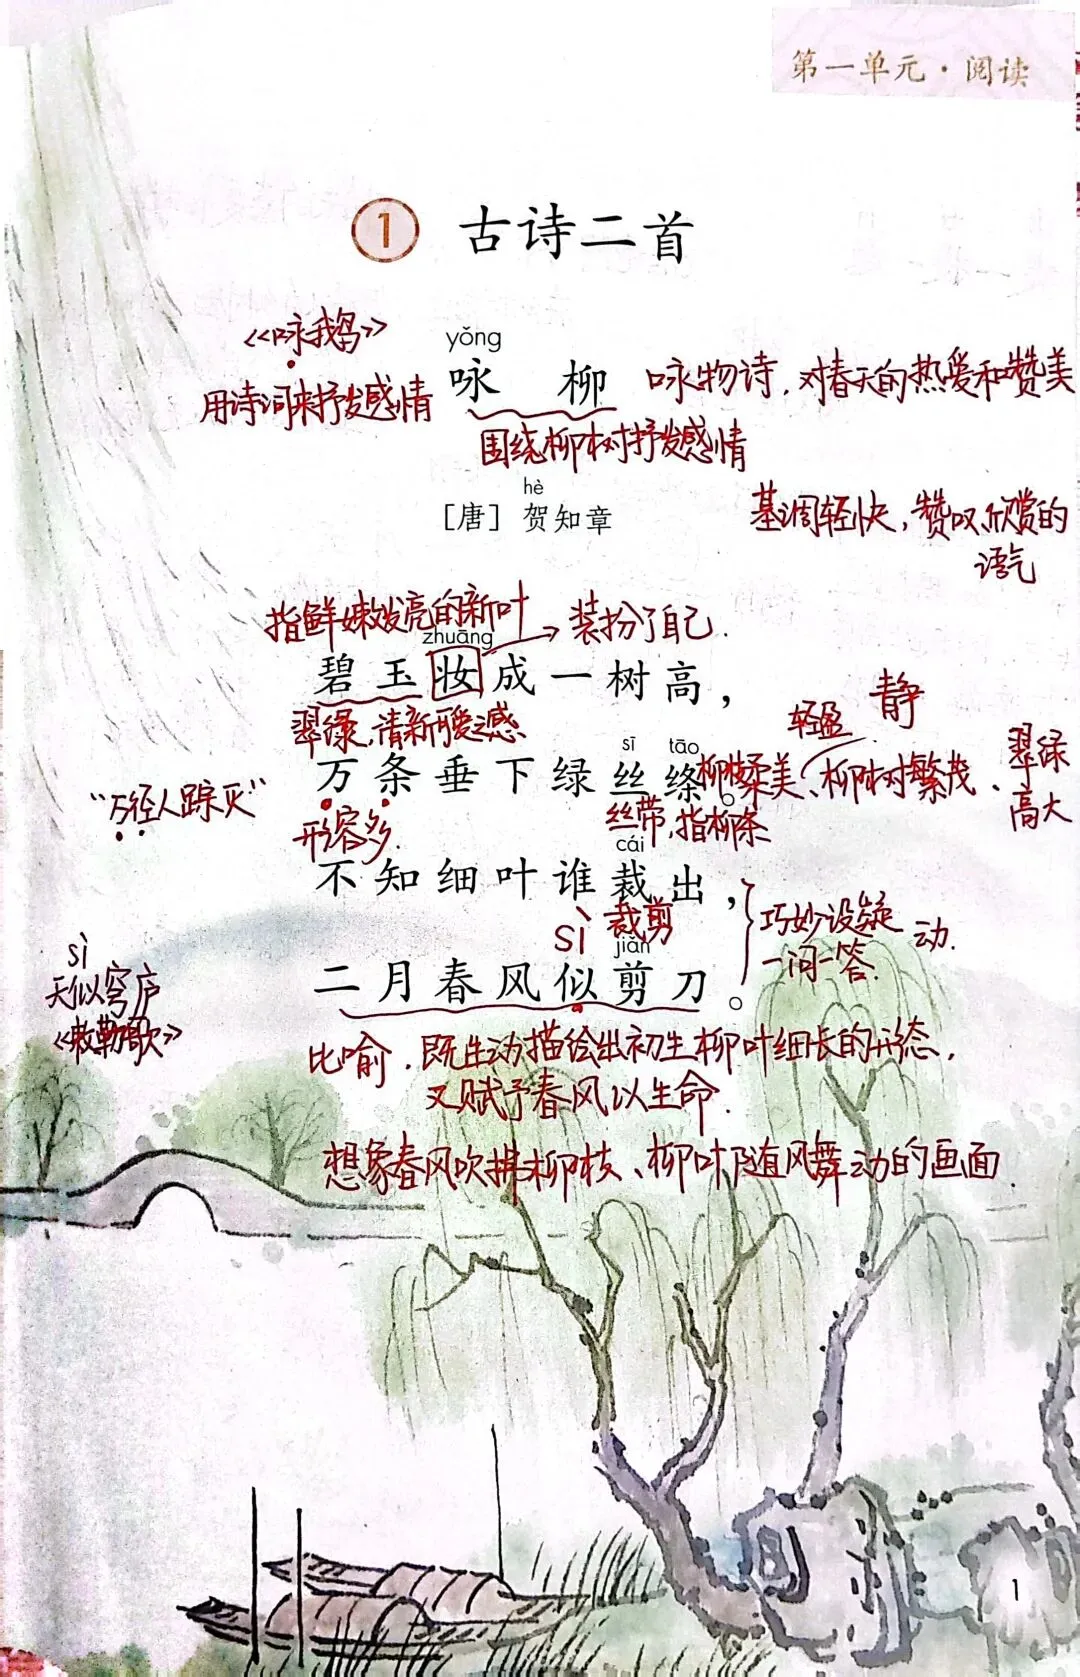 第一单元·阅读
1 古诗二首
《咏鹅》
yǒng
咏 柳
用诗词来抒发感情
咏物诗，对春天的热爱和赞美
围绕柳树抒发感情
hè
[唐] 贺知章
基调轻快，赞叹、欣赏的
语气
指鲜嫩发亮的新叶
→装扮了自己.
zhuāng
碧玉妆成一树高，
翠绿，清新可爱之感
轻盈
静
sī tāo
万条垂下绿丝绦。
柳枝柔美、柳树繁茂、翠绿
高大
“万径人踪灭”
形容多.
丝带，指柳条
cái
不知细叶谁裁出，
裁剪
巧妙设疑
一问一答.
动.
sì
jiǎn
二月春风似剪刀。
sì
天似穹庐
《敕勒歌》
比喻，既生动描绘出初生柳叶细长的形态，
又赋予春风以生命.
想象春风吹拂柳枝、柳叶随风舞动的画面.
1